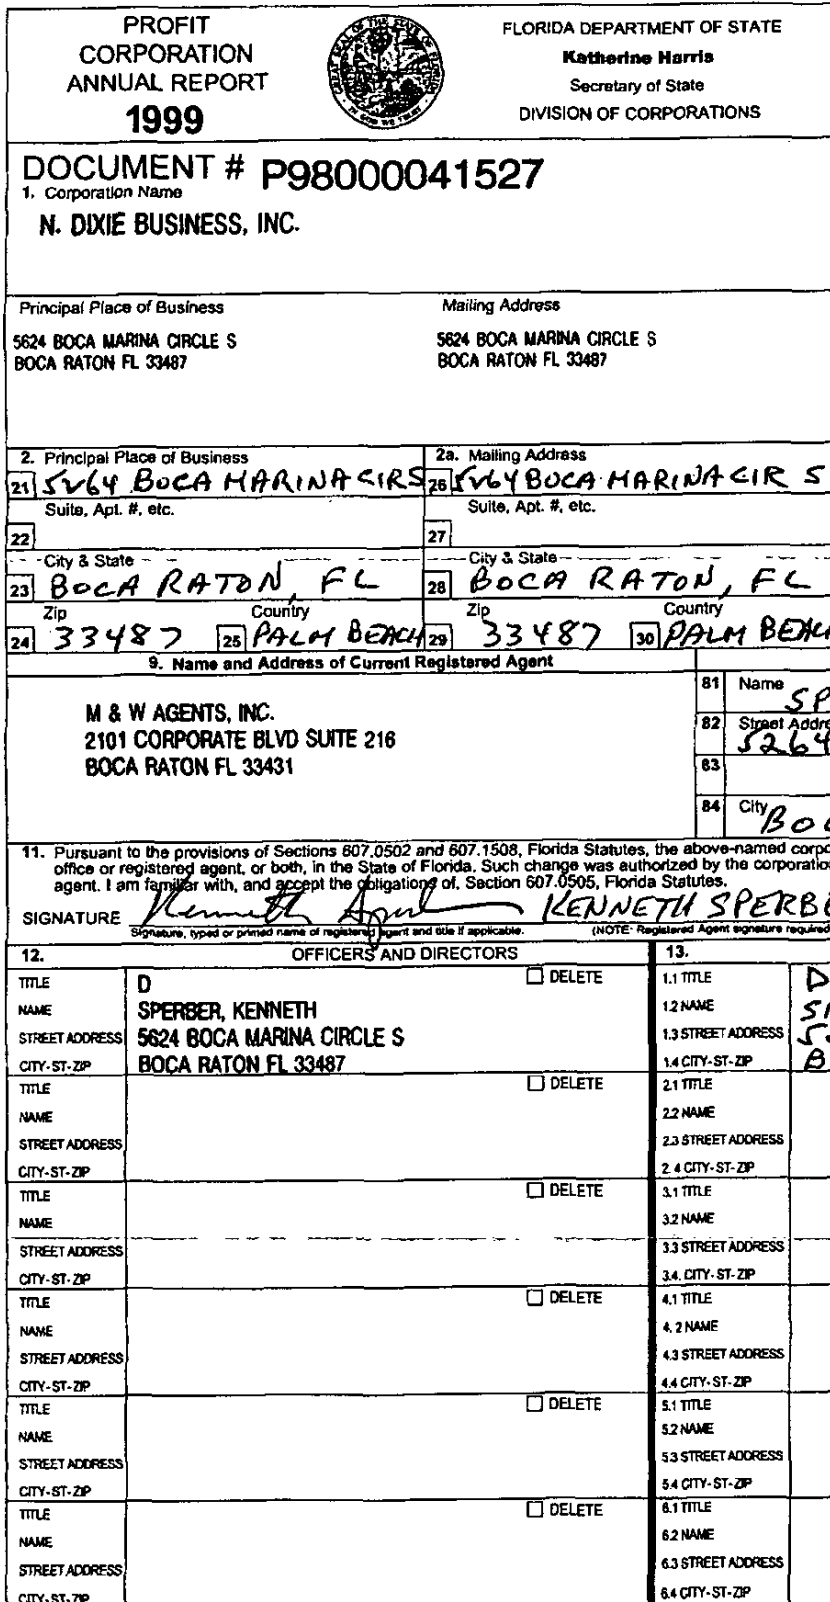 PROFIT
CORPORATION
ANNUAL REPORT
1999
GREAT SEAL OF THE STATE OF FLORIDA
IN GOD WE TRUST
FLORIDA DEPARTMENT OF STATE
Katherine Harris
Secretary of State
DIVISION OF CORPORATIONS
DOCUMENT # P98000041527
1. Corporation Name
N. DIXIE BUSINESS, INC.
Principal Place of Business
Mailing Address
5624 BOCA MARINA CIRCLE S
BOCA RATON FL 33487
5624 BOCA MARINA CIRCLE S
BOCA RATON FL 33487
2. Principal Place of Business
2a. Mailing Address
21 5264 BOCA MARINA CIR S
26 5264 BOCA MARINA CIR S
Suite, Apt. #, etc.
Suite, Apt. #, etc.
22
27
City & State
City & State
23 BOCA RATON, FL
28 BOCA RATON, FL
Zip
Country
Zip
Country
24 33487
25 PALM BEACH
29 33487
30 PALM BEACH
9. Name and Address of Current Registered Agent
M & W AGENTS, INC.
2101 CORPORATE BLVD SUITE 216
BOCA RATON FL 33431
81 Name
SP
82 Street Addre
5264
83
84 City
BOC
11. Pursuant to the provisions of Sections 607.0502 and 607.1508, Florida Statutes, the above-named corpo
office or registered agent, or both, in the State of Florida. Such change was authorized by the corporatio
agent. I am familiar with, and accept the obligations of, Section 607.0505, Florida Statutes.
SIGNATURE Kenneth Sperber KENNETH SPERBE
Signature, typed or printed name of registered agent and title if applicable. (NOTE: Registered Agent signature required
12. OFFICERS AND DIRECTORS
13.
TITLE D DELETE
NAME SPERBER, KENNETH
STREET ADDRESS 5624 BOCA MARINA CIRCLE S
CITY-ST-ZIP BOCA RATON FL 33487
1.1 TITLE D
1.2 NAME
1.3 STREET ADDRESS
1.4 CITY-ST-ZIP B
TITLE DELETE
NAME
STREET ADDRESS
CITY-ST-ZIP
2.1 TITLE
2.2 NAME
2.3 STREET ADDRESS
2.4 CITY-ST-ZIP
TITLE DELETE
NAME
STREET ADDRESS
CITY-ST-ZIP
3.1 TITLE
3.2 NAME
3.3 STREET ADDRESS
3.4. CITY-ST-ZIP
TITLE DELETE
NAME
STREET ADDRESS
CITY-ST-ZIP
4.1 TITLE
4.2 NAME
4.3 STREET ADDRESS
4.4 CITY-ST-ZIP
TITLE DELETE
NAME
STREET ADDRESS
CITY-ST-ZIP
5.1 TITLE
5.2 NAME
5.3 STREET ADDRESS
5.4 CITY-ST-ZIP
TITLE DELETE
NAME
STREET ADDRESS
CITY-ST-ZIP
6.1 TITLE
6.2 NAME
6.3 STREET ADDRESS
6.4 CITY-ST-ZIP